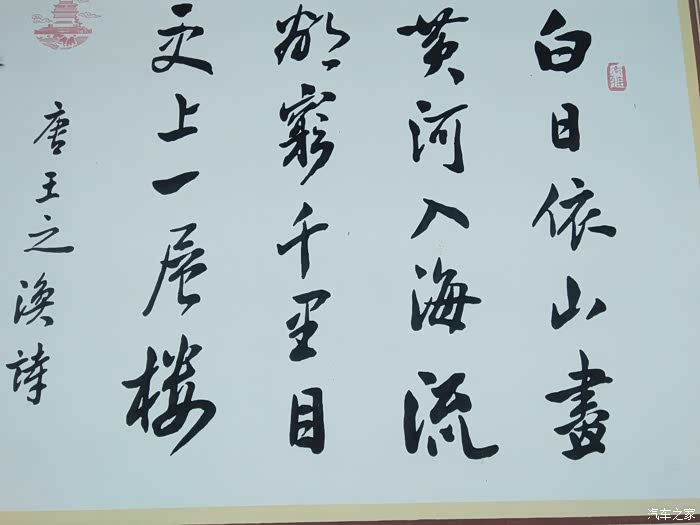 白日依山畫
黄河入海流
欲窮千里目
更上一层楼
唐王之渙詩
汽车之家